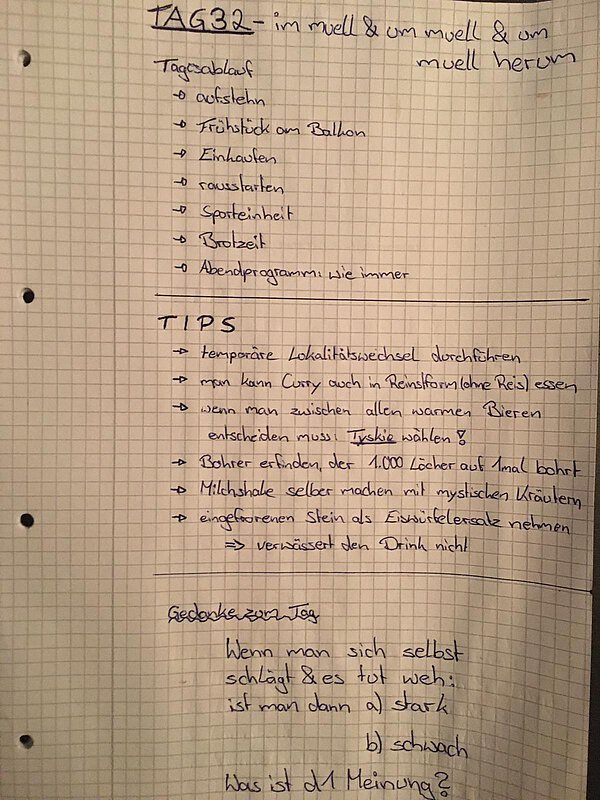 TAG32 - im muell & um muell & um
muell herum
Tagesablauf
→ aufstehn
→ Frühstück am Balkon
→ Einkaufen
→ rausstarten
→ Sporteinheit
→ Brotzeit
→ Abendprogramm: wie immer
TIPS
→ temporäre Lokalitätswechsel durchführen
→ man kann Curry auch in Reinstform (ohne Reis) essen
→ wenn man zwischen allen warmen Bieren
entscheiden muss: Tyskie wählen!
→ Bohrer erfinden, der 1.000 Löcher auf 1mal bohrt
→ Milchshake selber machen mit mystischen Kräutern
→ eingefrorenen Stein als Eiswürfelersatz nehmen
⇒ verwässert den Drink nicht
Gedanke zum Tag
Wenn man sich selbst
schlägt & es tut weh:
ist man dann a) stark
b) schwach
Was ist d1 Meinung?